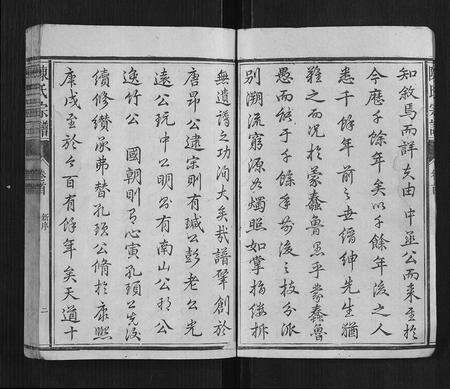 知敘焉而詳矣由中並公而來至於
今歷千餘年矣以千餘年後之人
悉千餘年前之世縉紳先生猶
難之而況於蒙蠢魯愚乎蒙蠢魯
愚而能于千餘年前後之枝分派
別溯流窮源如燭照如掌指條析
無遺譜之功洵大矣哉譜肇創於
唐昂公遠宗則有瑊公彭老公先
遠公玩中公明則有南山公初公
逸竹公 國朝則乃心寅孔頊公先後
續修纘承弗替孔頊公脩於康熙
庚戌至於今百有餘年矣天道十
陳氏宗譜
卷首
新序
二
陳氏宗譜